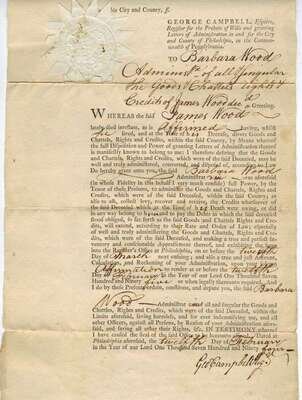 City and County, ss.
GEORGE CAMPBELL, Esquire,
Register for the Probate of Wills and granting
Letters of Administration in and for the City
and County of Philadelphia, in the Common-
wealth of Pennsylvania.
To Barbara Wood
Administ of all & singular
The Goods Chattels rights &
Credits of James Wood dec'd Greeting.
WHEREAS the said James Wood
lately died intestate, as is Affirmed having, whilst
he lived, and at the Time of Decease, divers Goods and
Chattels, Rights and Credits, within the said County, by Means whereof
the full Disposition and Power of granting Letters of Administration thereof
is manifestly known to belong to me: I therefore desiring, that the Goods
and Chattels, Rights and Credits, which were of the said Deceased, may be
well and truly administered, converted, and disposed of according to Law, Do
hereby grant unto you, the said Barbara Wood
Administ as aforesaid
(in whose Fidelity in this behalf I very much confide) full Power, by the
Tenor of these Presents, to administer the Goods and Chattels, Rights and
Credits, which were of the said Deceased, within the Limits aforesaid;
also to ask, collect, levy, recover and receive, the Credits whatsoever of
the said Deceased, which at the Time of Death were owing, or did
in any way belong to and to pay the Debts in which the said Deceased
stood obliged, so far forth as the said Goods and Chattels, Rights and Cre-
dits, will extend, according to their Rate and Order of Law; especially
of well and truly
were of the said Deceased, and making a true and perfect In-
ventory and conscionable Appraisement thereof, and exhibiting the same
into the Register's Office at Philadelphia, on or before the Twelfth
Day of March next ensuing; and also a true and just Account,
Calculation, and Reckoning of your Administration, upon your
Affirmation render at or before the twelfth
Day of February in the Year of our Lord One Thousand Seven
Hundred and Ninety five or when legally thereunto required. And
I do by these Presents, ordain, constitute, and depute you, the said Barbara
Wood Administrat of all and singular the Goods and
Chattels, Rights and Credits, which were of the said Deceased, within the
Limits aforesaid, saving harmless, and for ever indemnifying me, and all
other Officers, against all Persons, by Reason of your Administration afore-
said, and saving all other their Rights, &c. IN TESTIMONY whereof
I have caused the Seal of the said Office to be hereunto affixed. Dated at
Philadelphia aforesaid, the twelfth Day of February
in the Year of our Lord One Thousand Seven Hundred and Ninety four
Geo Campbell Regr